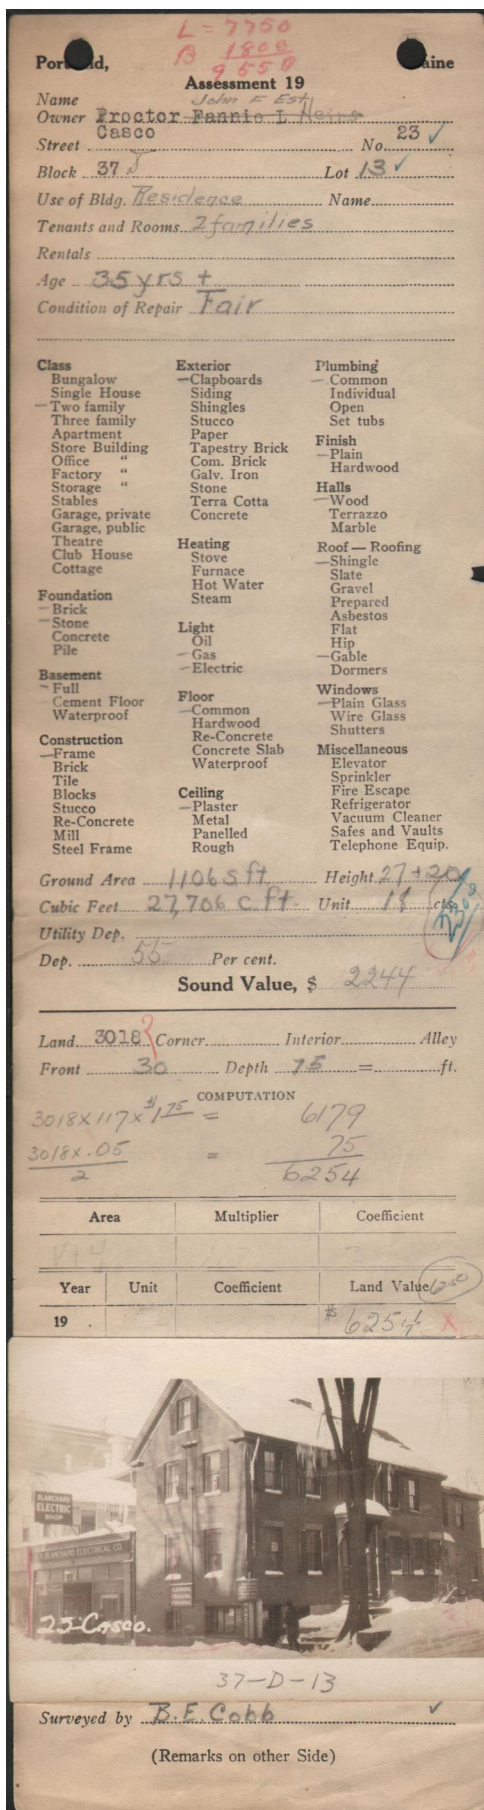 L = 7750
B 1800
9550
Portland, Maine
Assessment 19
Name John F Est
Owner Proctor Fannie L Heirs
Street Casco No. 23 ✓
Block 37 D Lot 13 ✓
Use of Bldg. Residence Name
Tenants and Rooms 2 families
Rentals
Age 35 yrs +
Condition of Repair Fair
Class
Bungalow
Single House
– Two family
Three family
Apartment
Store Building
Office "
Factory "
Storage "
Stables
Garage, private
Garage, public
Theatre
Club House
Cottage
Foundation
– Brick
– Stone
Concrete
Pile
Basement
– Full
Cement Floor
Waterproof
Construction
– Frame
Brick
Tile
Blocks
Stucco
Re-Concrete
Mill
Steel Frame
Exterior
– Clapboards
Siding
Shingles
Stucco
Paper
Tapestry Brick
Com. Brick
Galv. Iron
Stone
Terra Cotta
Concrete
Heating
Stove
Furnace
Hot Water
Steam
Light
Oil
– Gas
– Electric
Floor
– Common
Hardwood
Re-Concrete
Concrete Slab
Waterproof
Ceiling
– Plaster
Metal
Panelled
Rough
Plumbing
– Common
Individual
Open
Set tubs
Finish
– Plain
Hardwood
Halls
– Wood
Terrazzo
Marble
Roof — Roofing
– Shingle
Slate
Gravel
Prepared
Asbestos
Flat
Hip
– Gable
Dormers
Windows
– Plain Glass
Wire Glass
Shutters
Miscellaneous
Elevator
Sprinkler
Fire Escape
Refrigerator
Vacuum Cleaner
Safes and Vaults
Telephone Equip.
Ground Area 1106 s ft Height 27 + 20
Cubic Feet 27,706 c. ft. Unit 18 cts.
Utility Dep.
Dep. 55 Per cent.
Sound Value, $ 2244
Land 3018 Corner Interior Alley
Front 30 Depth 75 = ft.
COMPUTATION
3018 x 117 x $1.75 = 6179
3018 x .05 = 75
2 6254
Area Multiplier Coefficient
Year Unit Coefficient Land Value 6250
19 $ 6254
BLANCHARD
ELECTRIC
SHOP
BLANCHARD ELECTRICAL CO.
23 CASCO.
37-D-13
Surveyed by B. E. Cobb ✓
(Remarks on other Side)